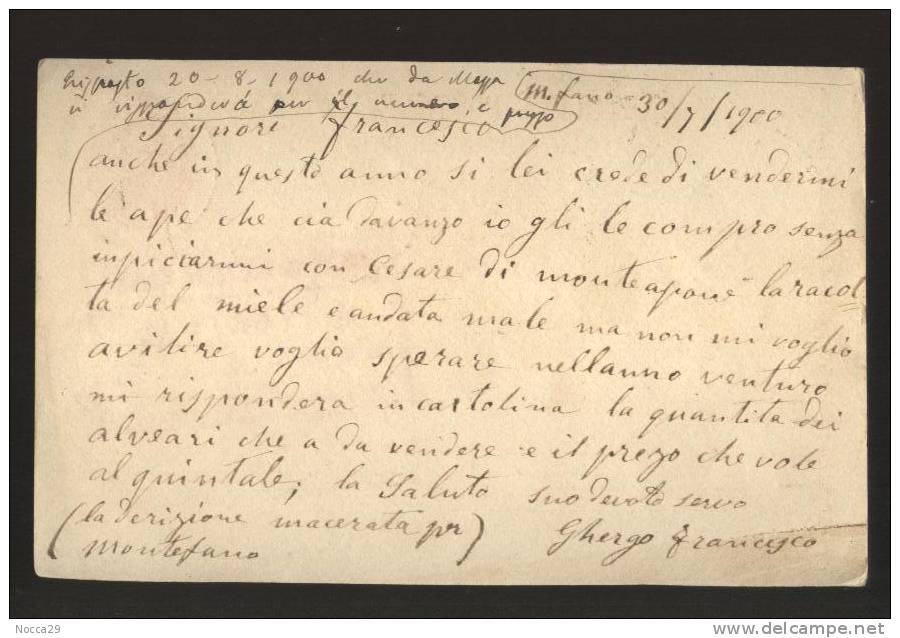 Risposto 20-8-1900 che da Massa
vi risponderà per il numero e prezzo
M. fano 30/7/1900
Signore Francesco
anche in questo anno si lei crede di vendermi
le ape che cia davanzo io gli le compro senza
inpiciarmi con Cesare di monteapone laracol-
ta del miele e andata male ma non mi voglio
avilire voglio sperare nellanno venturo
mi rispondera in cartolina la quantita dei
alveari che a da vendere e il prezo che vole
al quintale, la Saluto suo devoto servo
(la derizione macerata pr Ghergo francesco
Montefano)
Nocca29
delcampe.net